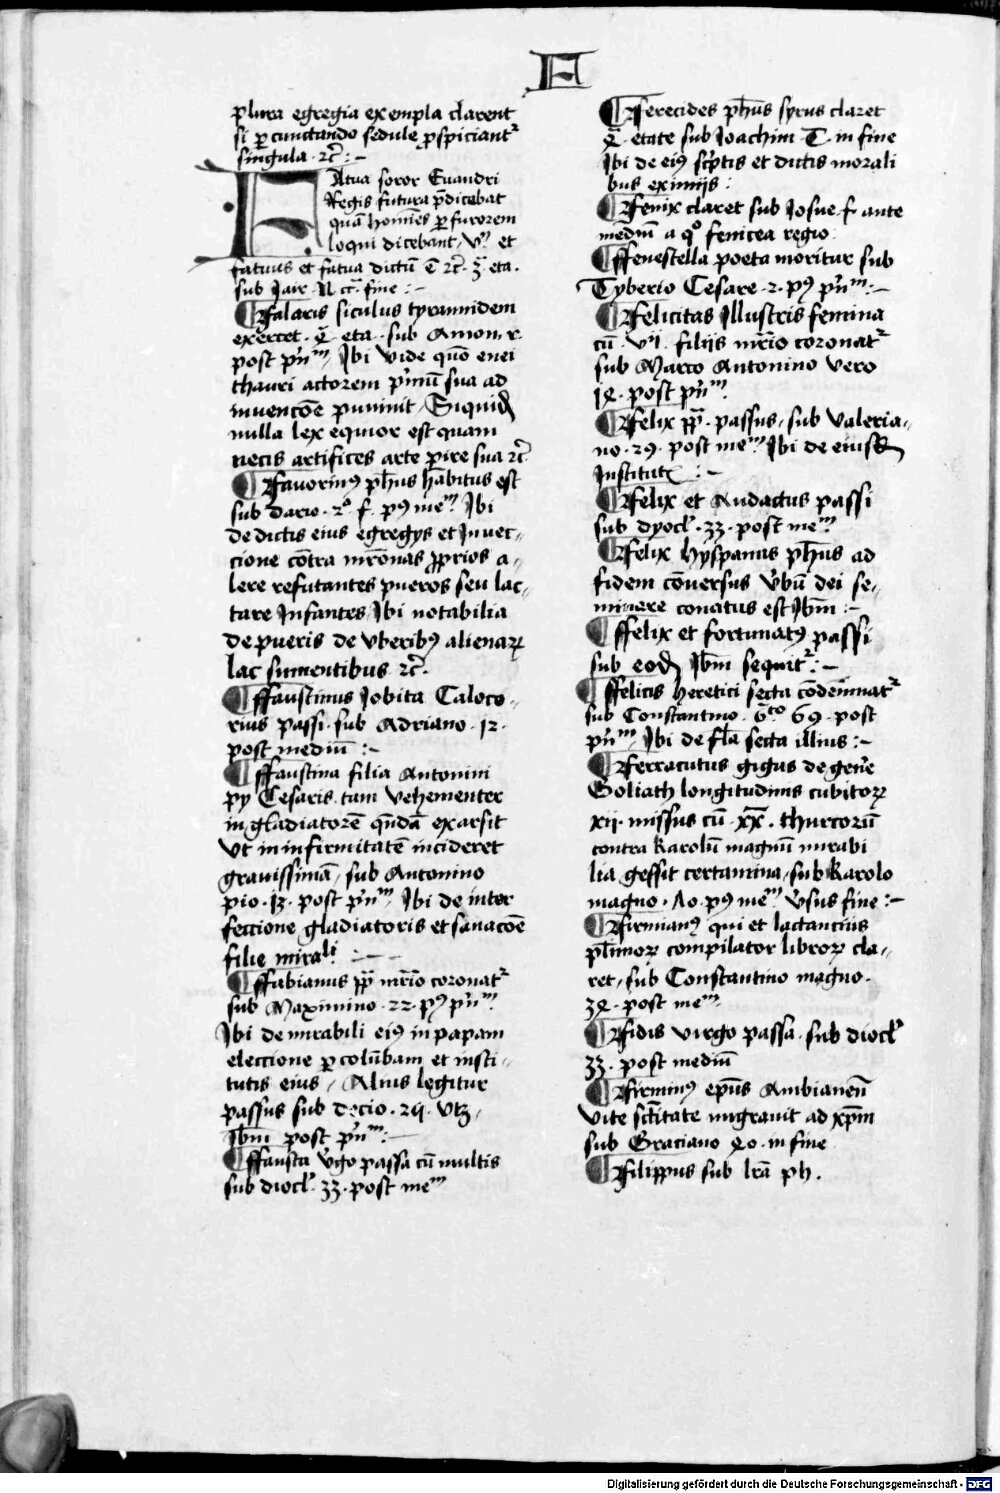 F
plura egregia exempla clarent
si ꝑ cunctando sedule ꝑspiciantᷣ
singula · ⁊c̄ :-
Fatua soror Euandri
Regis futura p̄dicebat
quā homīes ꝑ furorem
loqui dicebānt, vn̄ et
fatuus et fatua dictū ē ⁊c̄ · 3ᵃ eta ·
sub Jair · fine :-
¶ Falaris siculus tyrannidem
exercet · 4ᵃ eta · sub Amon · r̄
post pn̄ᵐ, Jbi vide quō enei
thauri actorem pͥmū sua ad
inuencōe puniuit, Siquidē
nulla lex equior est quam
necis artifices arte ꝑire sua ⁊c̄
¶ Fauorinꝰ ph̄us habitus est
sub dario · 2º · f · pꝰ meᵐ Jbi
de dictis eius egregijs et Jnuec-
cione cōtra mr̄onas ꝓprios a-
lere refutantes pueros seu lac-
tare Jnfantes, Jbi notabilia
de pueris de vberibꝰ alienaꝝ
lac sumentibus ⁊c̄ ·
¶ ffaustinus Jobita Caloce-
rius passi · sub Adriano · 12 ·
post mediū :-
¶ ffaustina filia Antonini
py Cesaris tam vehementer
in gladiatorē quēdā exarsit
vt in infirmitatē incideret
grauissimā, sub Antonino
pio · 13 · post pn̄ᵐ, Jbi de inter
feccione gladiatoris et sanacōe
filie mirali :-
¶ ffabianus pp̄ mr̄io coronatᷣ
sub Maximino · 22 · pꝰ pn̄ᵐ
Jbi de mirabili eiꝰ in papam
eleccione ꝑ colūbam et insti-
tutis eius, Alius legitur
passus sub decio · 24 · vtʒ,
Jbm̄ post pn̄ᵐ :-
¶ ffausta v̓go passa cū multis
sub diocl̓ · 33 · post meᵐ
¶ Fferecides ph̄us syrus claret
4ᵃ · etate sub Joachim · T · in fine
Jbi de eiꝰ scͥptis et dictis morali
bus eximijs :
¶ Fenix claret sub Josue · f · ante
mediū a qº fenicea regio
¶ ffenestella poeta moritur sub
Tyberio Cesare · 2 · pꝰ pn̄ᵐ :-
¶ Felicitas Jllustris femina
cū · vii · filijs mr̄io coronatᷣ
sub Marco Antonino vero
14 · post pn̄ᵐ
¶ Felix pp̄ · passus, sub valeria-
no · 29 · post meᵐ Jbi de eiusdē
Jnstitutꝭ :-
¶ Felix et Audactus passi
sub dyocl̓ · 33 · post meᵐ
¶ Felix hyspanus ph̄us ad
fidem cōuersus v̓bū dei se-
minare conatus est Jbm̄ :-
¶ ffelix et fortunatꝰ passi
sub eodē Jbm̄ sequitᷣ :-
¶ ffelicis heretici secta cōdemnatᷣ
sub Constantino · 6ᵗᵒ 69 · post
pn̄ᵐ, Jbi de fl̄a secta illius :-
¶ Ferracutus gigas de gen̓e
Goliath longitudinis cubitoꝝ
xii · missus cū · xx̄ · thurcorū
contra Karolū magnū mirabi
lia gessit certamina, sub Karolo
magno · 40 · pꝰ meᵐ v̓sus fine :-
¶ Firmianꝰ qui et lactancius
pl̄imoꝝ compilator libroꝝ cla-
ret, sub Constantino magno ·
34 · post meᵐ
¶ Fidis virgo passa · sub diocl̓
33 · post mediū
¶ Firminꝰ ep̄us Ambianen̄
vite sct̄itate migrauit ad xp̄m
sub Graciano 40 · in fine
¶ Filippus sub lr̄a ph ·
Digitalisierung gefördert durch die Deutsche Forschungsgemeinschaft - DFG